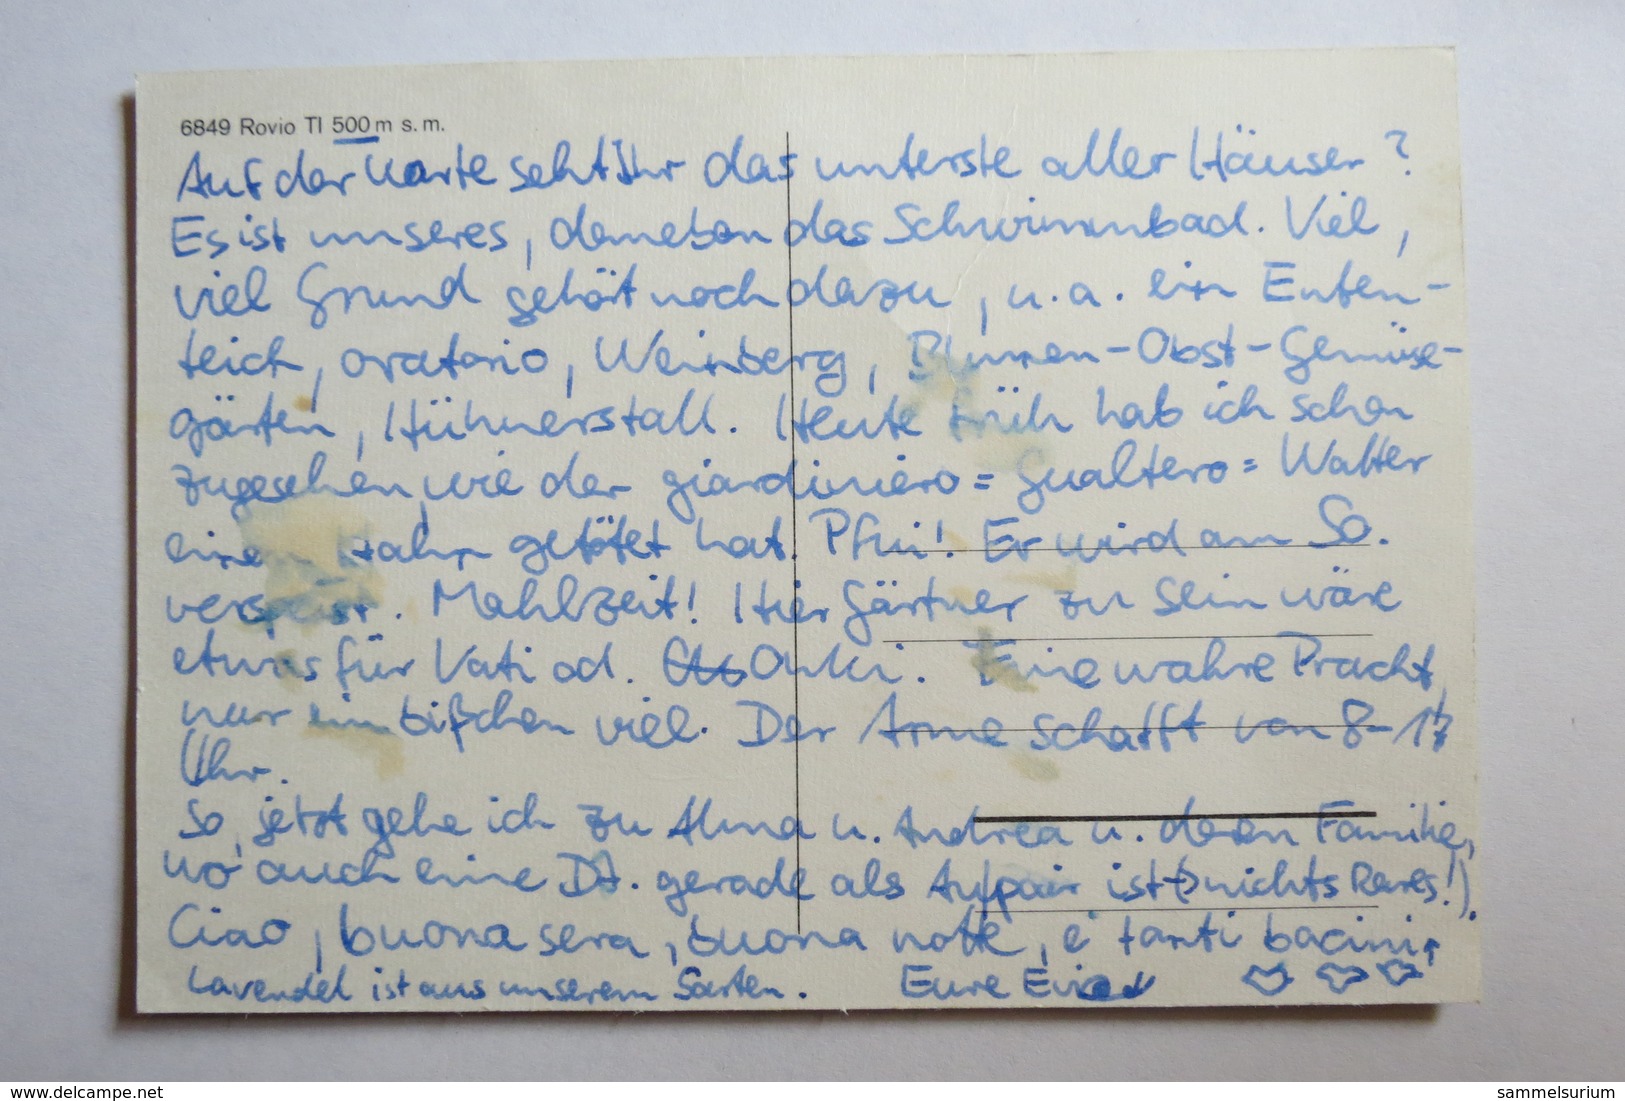 6849 Rovio TI 500 m s.m.
Auf der Karte seht Ihr das unterste aller Häuser?
Es ist unseres, daneben das Schwimmbad. Viel,
viel Grund gehört noch dazu, u.a. ein Enten-
teich, oratorio, Weinberg, Blumen-Obst-Gemüse-
gärten, Hühnerstall. Heute früh hab ich schon
zugesehen, wie der giardiniero = Gualtero = Walter
einen Hahn getötet hat. Pfui! Er wird am So.
verspeist. Mahlzeit! Hier Gärtner zu sein wäre
etwas für Vati od. Onki. Eine wahre Pracht,
nur ein bißchen viel. Der Arme schafft von 8-17
Uhr.
So, jetzt gehe ich zu Alma u. Andrea u. deren Familie,
wo auch eine Dt. gerade als Au pair ist (nichts Rares!).
Ciao, buona sera, buona notte, e tanti bacini,
Lavendel ist aus unserem Garten. Eure
delcampe.net
sammelsurium